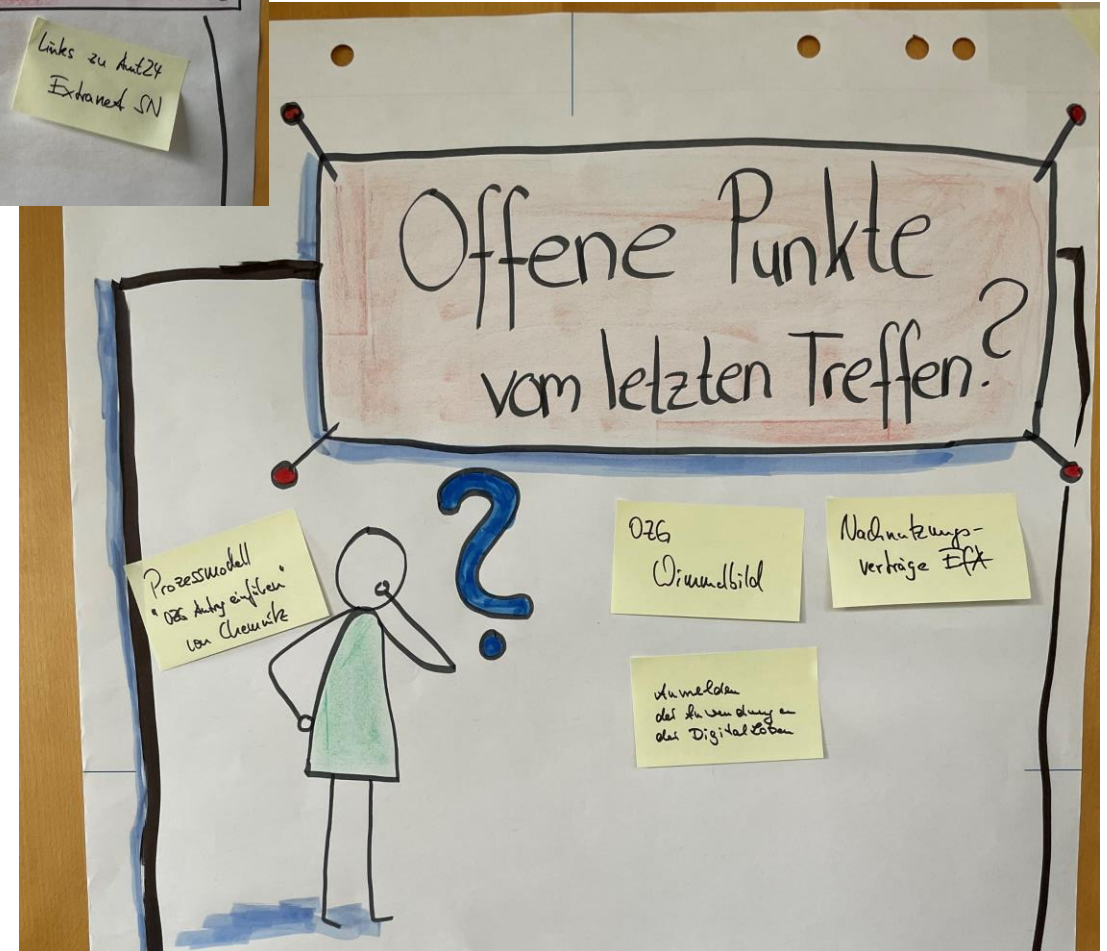 Links zu Amt24
Extranet SN
Offene Punkte
vom letzten Treffen?
Prozessmodell
"OZG Antrag einführen"
von Chemnitz
OZG
Wimmelbild
Nachnutzungs-
verträge EfA
Anmelden
der Anwendungen
der Digitallotsen